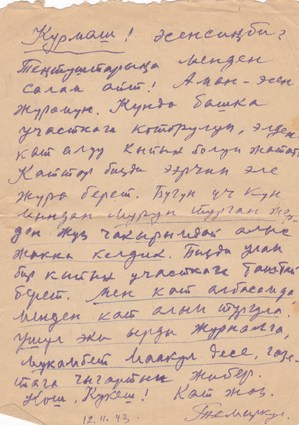 Курмаш! Эсенсиңби?
Теңтуштарыңа менден
салам айт! Аман-эсен
журомун. Кундо башка
участкага которулуп, элден
кат алуу кыйын болуп жатат.
Каттар бизди ээрчип эле
журо берет. Бугун уч кун
мындан мурун турган жер-
ден жуз чакырымдай алыс
жакка келдик. Бизди улам
бир кыйын участкага таштай
берет. Мен кат албасамда
менден кат алып тургула.
Ушул эки ырды журналга,
Мукамбет Маакул десе, газе-
тага чыгартып жибер.
Кош, Кукеш! Кат жаз.
12.II.43.
Темиркул.